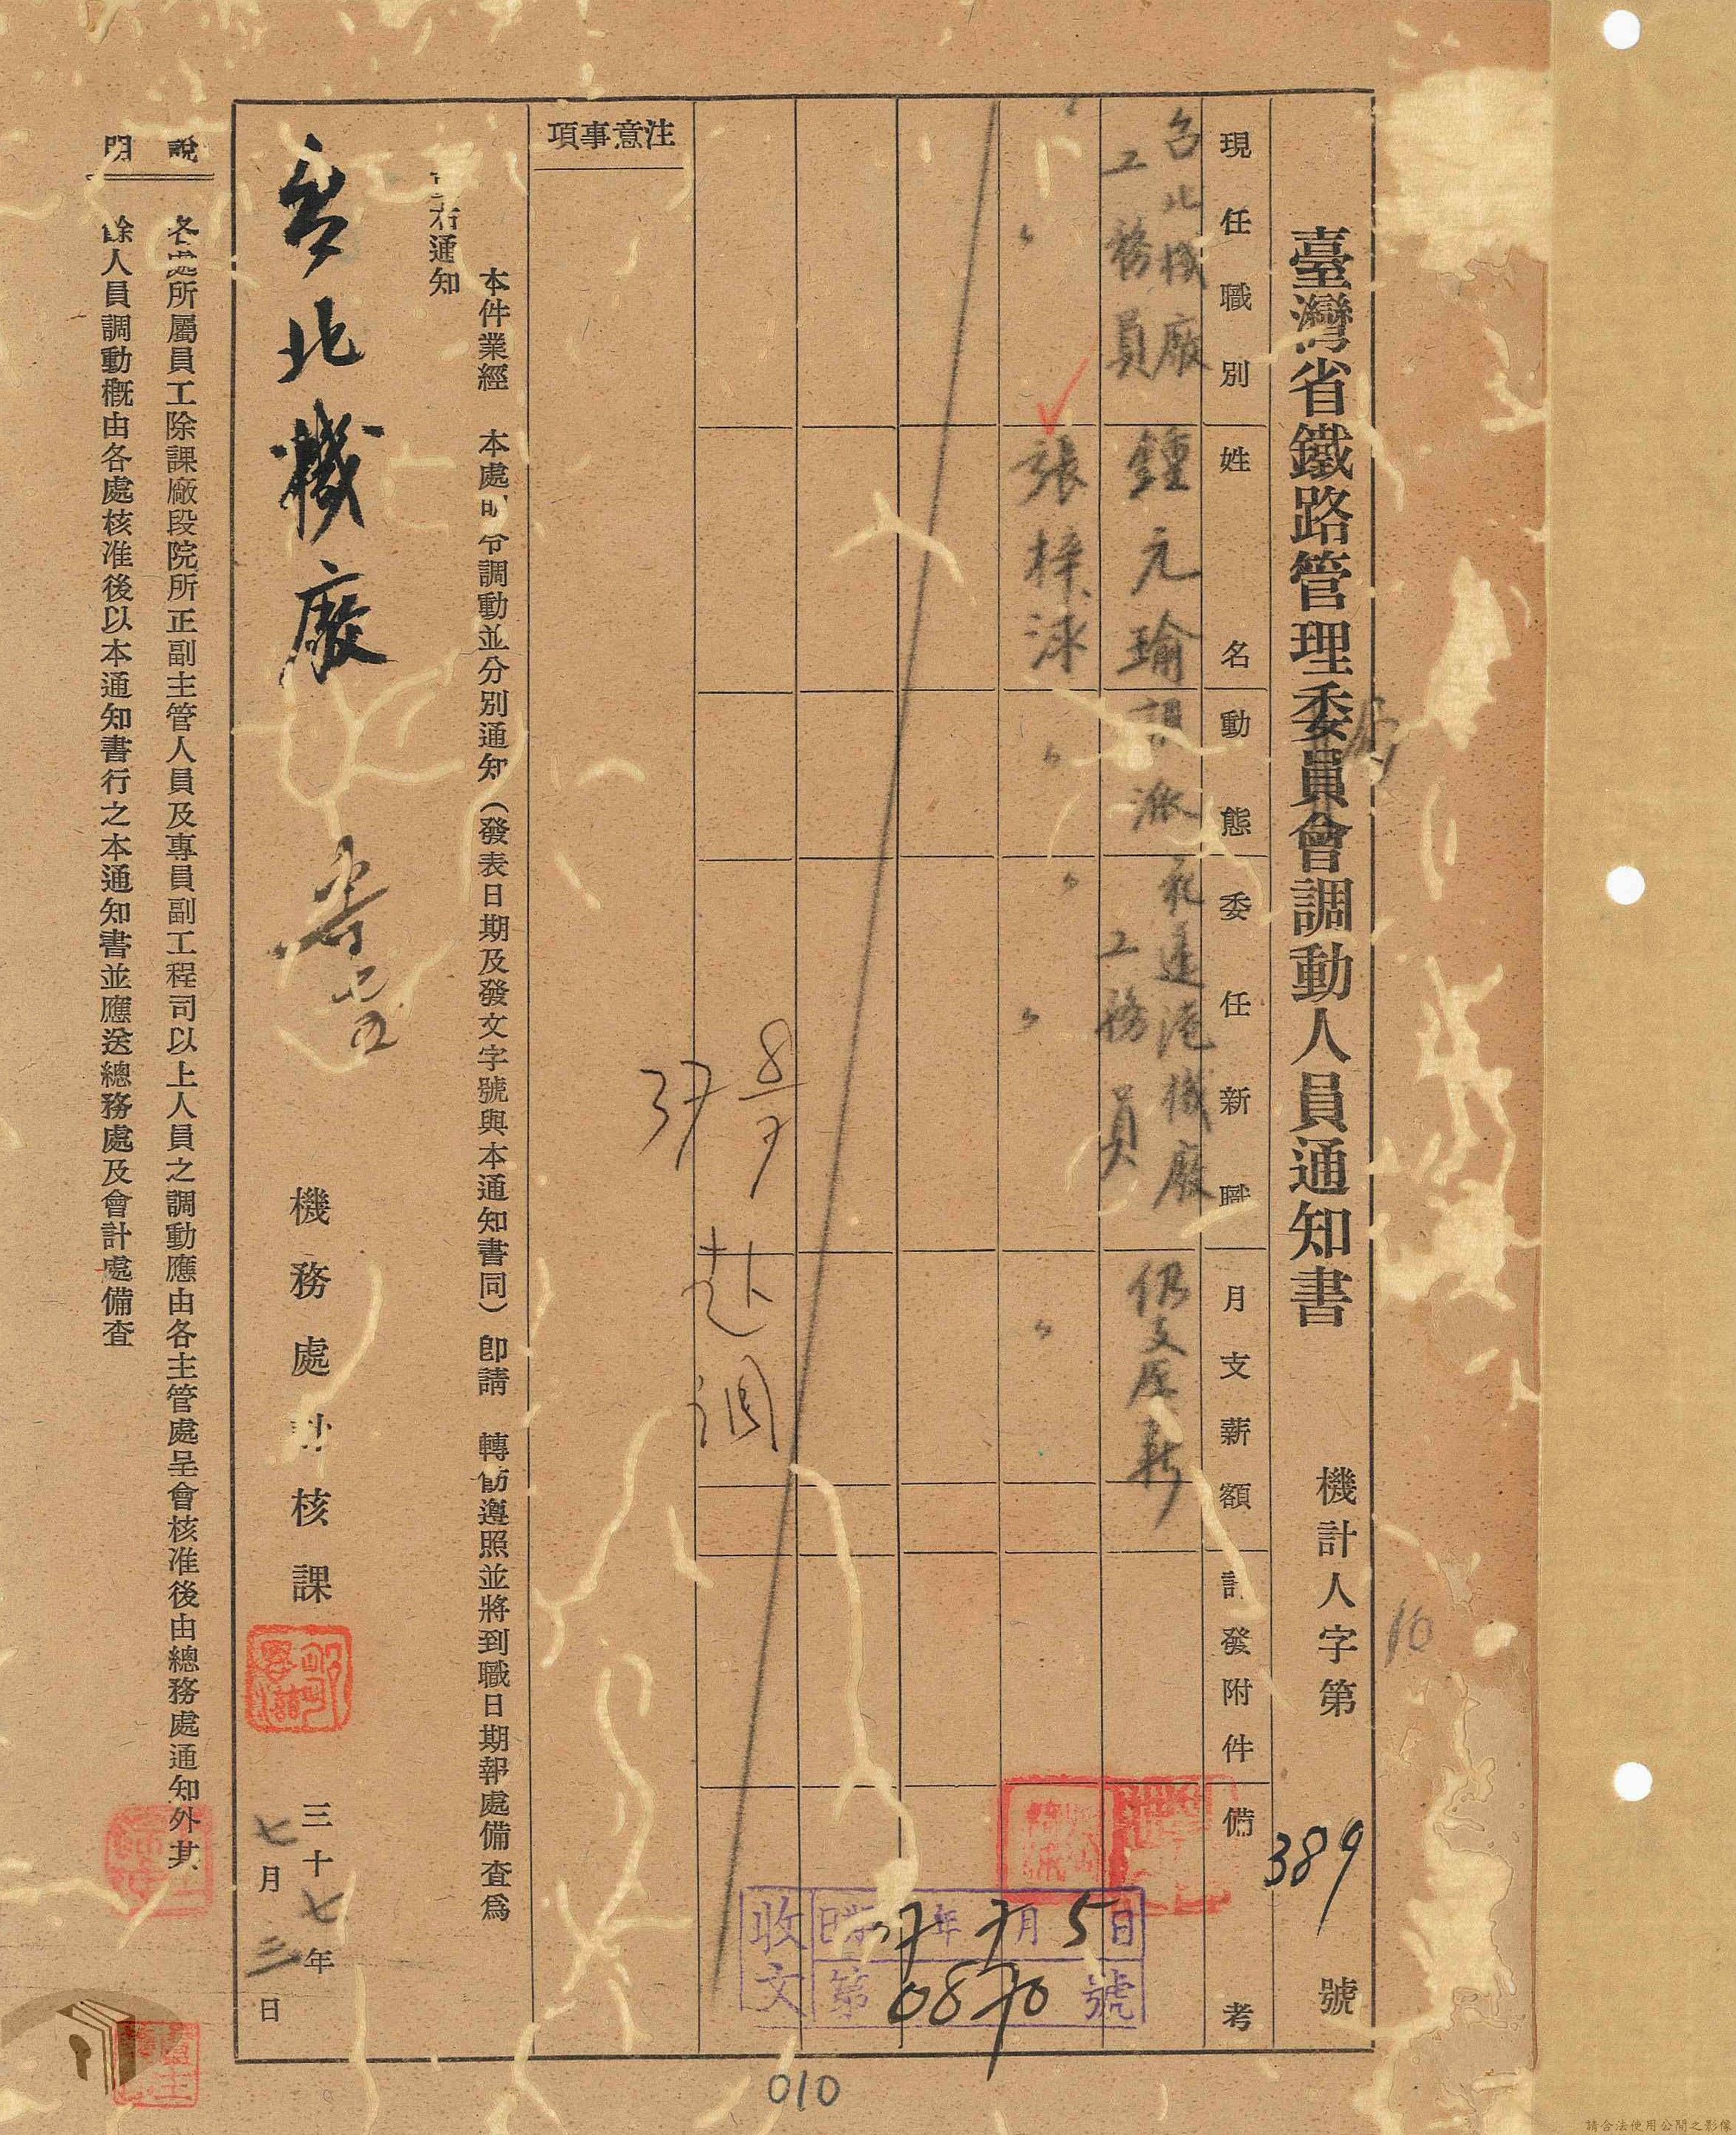 臺灣省鐵路管理委員會調動人員通知書
機計人字第389號
局
10
現任職別
姓名
動態
委任新職
月支薪額
計發附件
備考
台北機廠
工務員
鍾元瑜
調派
工務員
機廠
仍支原薪
〃
張梓
〃
〃
〃
〃
注意事項
37 8/7
赴調
收文
日期37年7月5日
第0870號
本件業經 本處 令調動並分別通知（發表日期及發文字號與本通知書同）即請 轉飭遵照並將到職日期報處備查為
右通知
台北機廠
機務處計核課
三十七年
七月三日
說明
各處所屬員工除課廠段院所正副主管人員及專員副工程司以上人員之調動應由各主管處呈會核准後由總務處通知外其
餘人員調動概由各處核准後以本通知書行之本通知書並應送總務處及會計處備查
010
請合法使用公開之影像